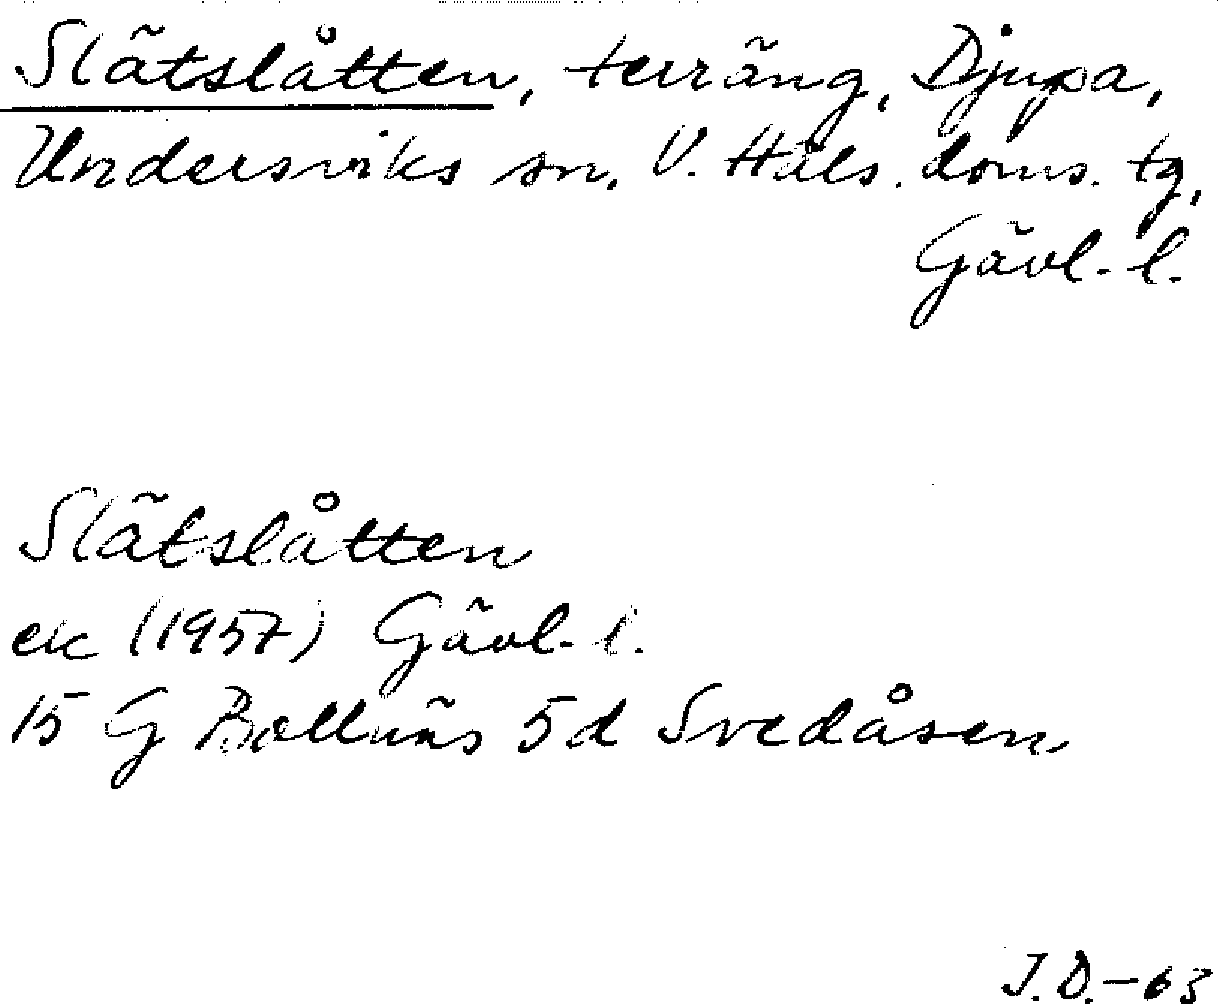 Slätslåtten, terräng, Djupa,
Undersviks sn. V. Häls. doms. tg,
Gävl. l.
Slätslåtten
ek (1957) Gävl. l.
15 G Bollnäs 5d Svedåsen
J.D. -63